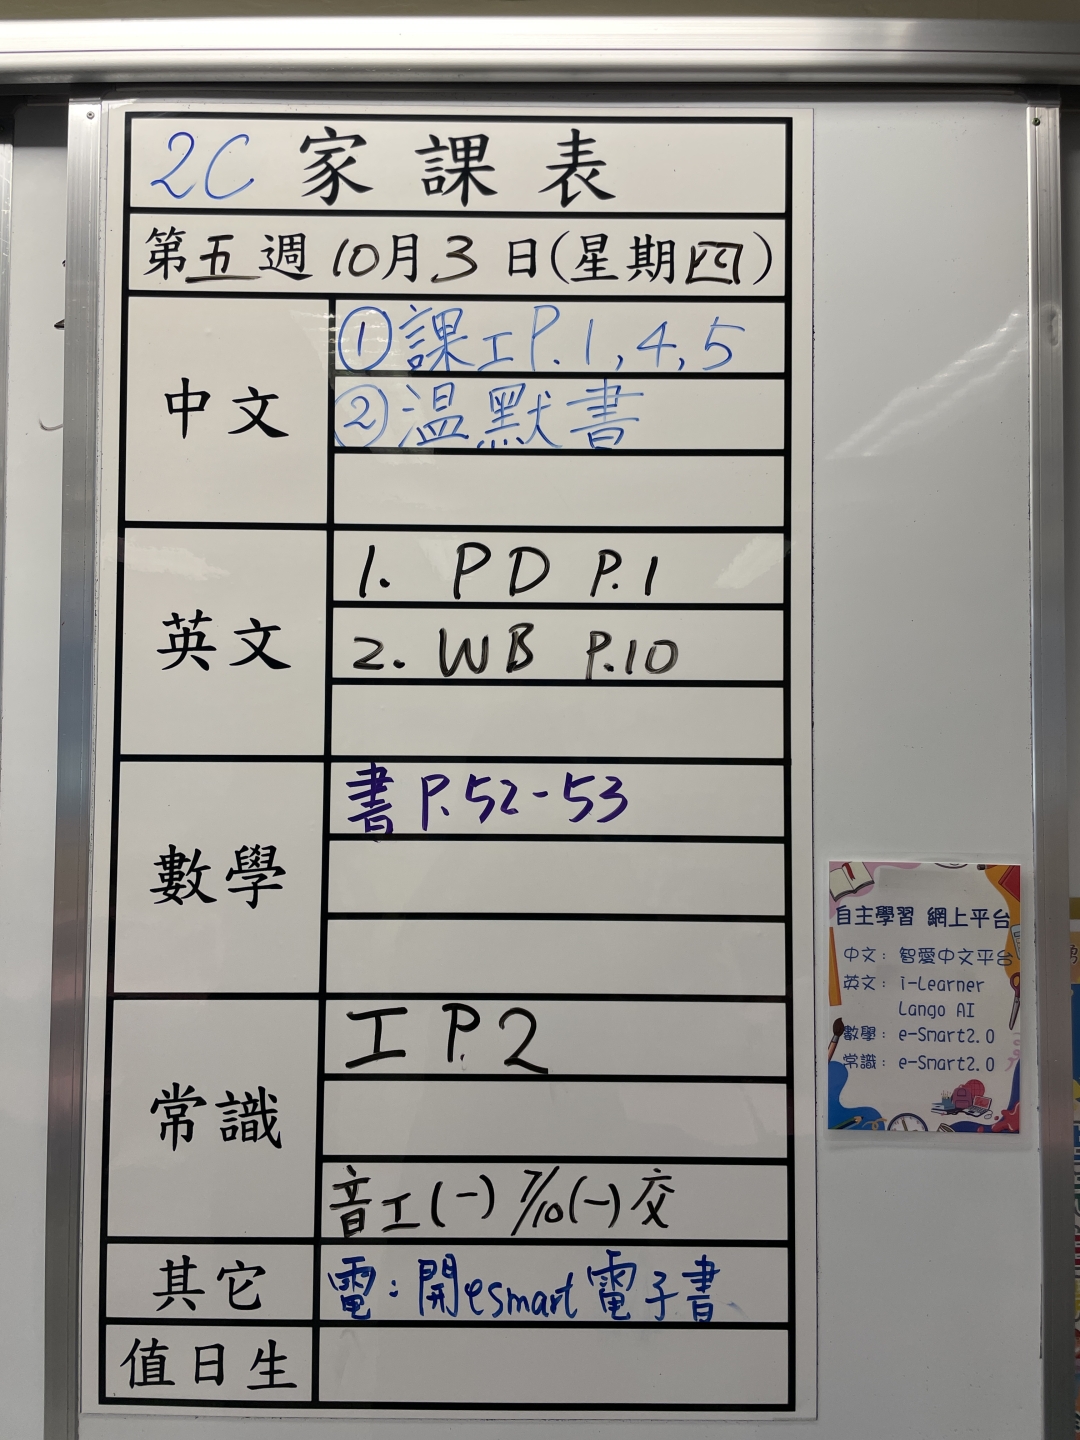 2C 家課表
第五週 10月3日(星期四)
中文
①課工P.1,4,5
②温默書
英文
1. PD P.1
2. WB P.10
數學
書 P.52-53
常識
工 P.2
音工(一) 7/10(一)交
其它
電:開esmart電子書
值日生
自主學習 網上平台
中文: 智愛中文平台
英文: i-Learner
Lango AI
數學: e-Smart2.0
常識: e-Smart2.0